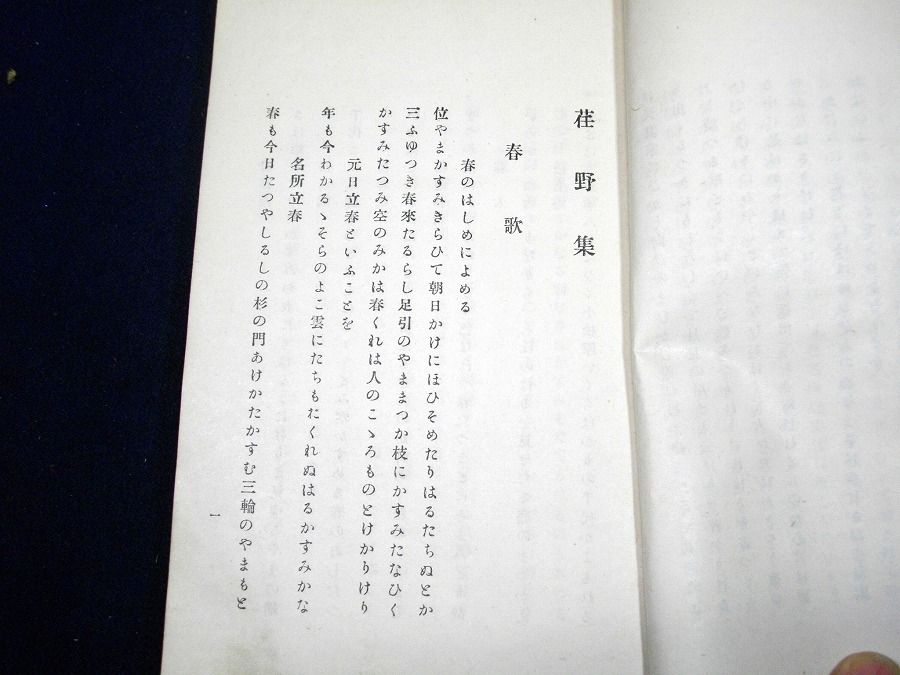 荏野集
春歌
春のはしめによめる
位やまかすみきらひて朝日かけにほひそめたりはるたちぬとか
三ふゆつき春來たるらし足引のやままつか枝にかすみたなひく
かすみたつみ空のみかは春くれは人のこゝろものとけかりけり
元日立春といふことを
年も今わかるゝそらのよこ雲にたちもおくれぬはるかすみかな
名所立春
春も今日たつやしるしの杉の門あけかたかすむ三輪のやまもと
一